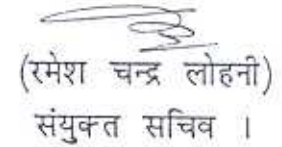 (रमेश चन्द्र लोहनी)
संयुक्त सचिव ।